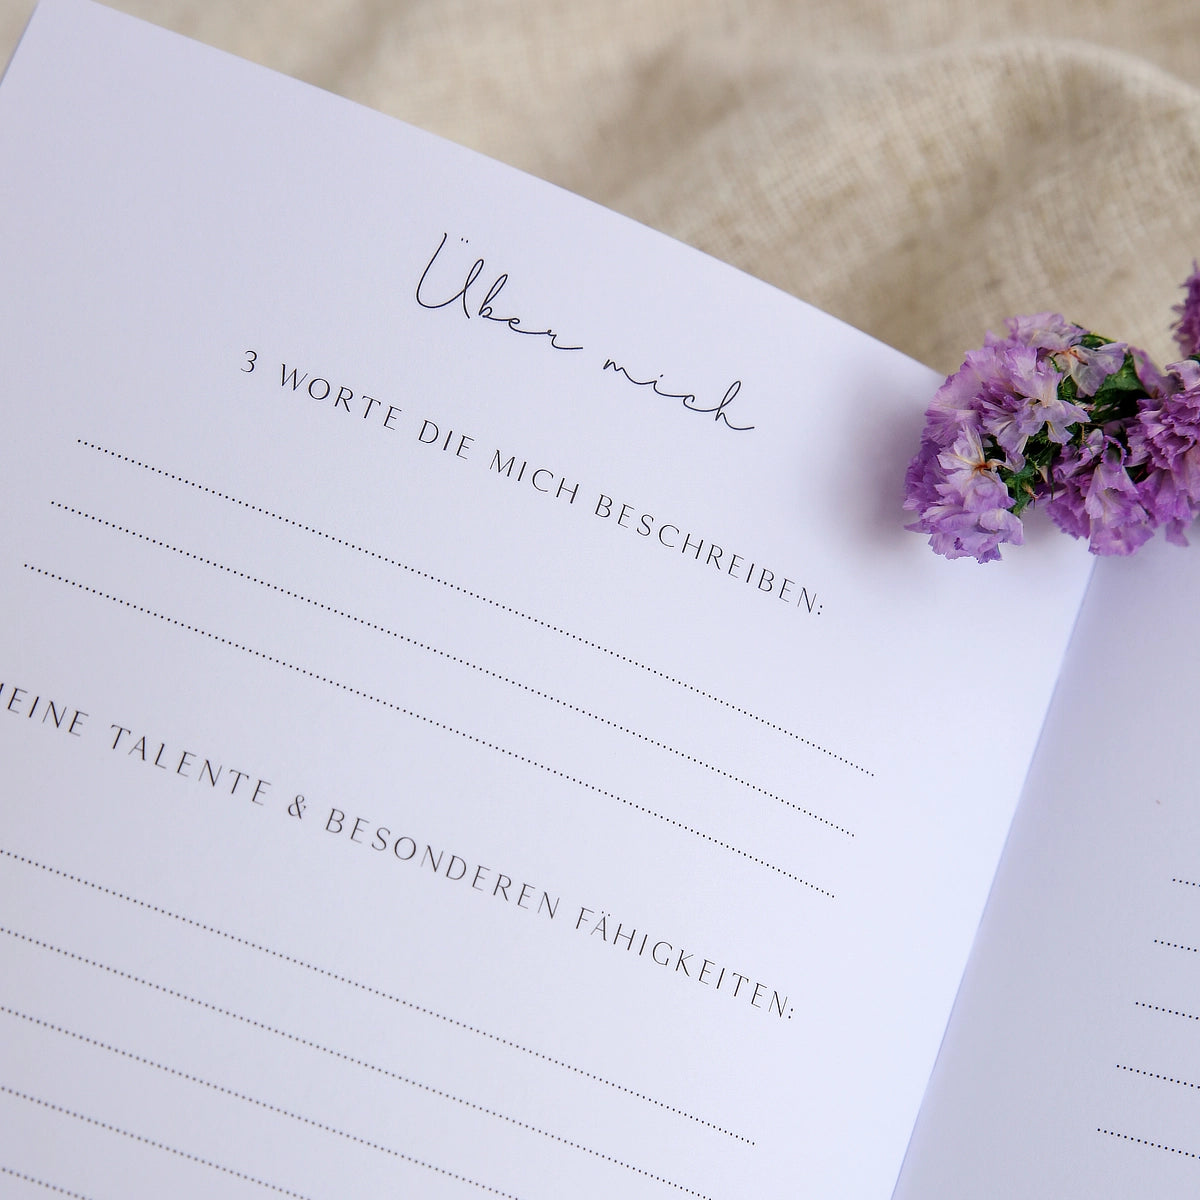 Über mich
3 WORTE DIE MICH BESCHREIBEN:
MEINE TALENTE & BESONDEREN FÄHIGKEITEN: